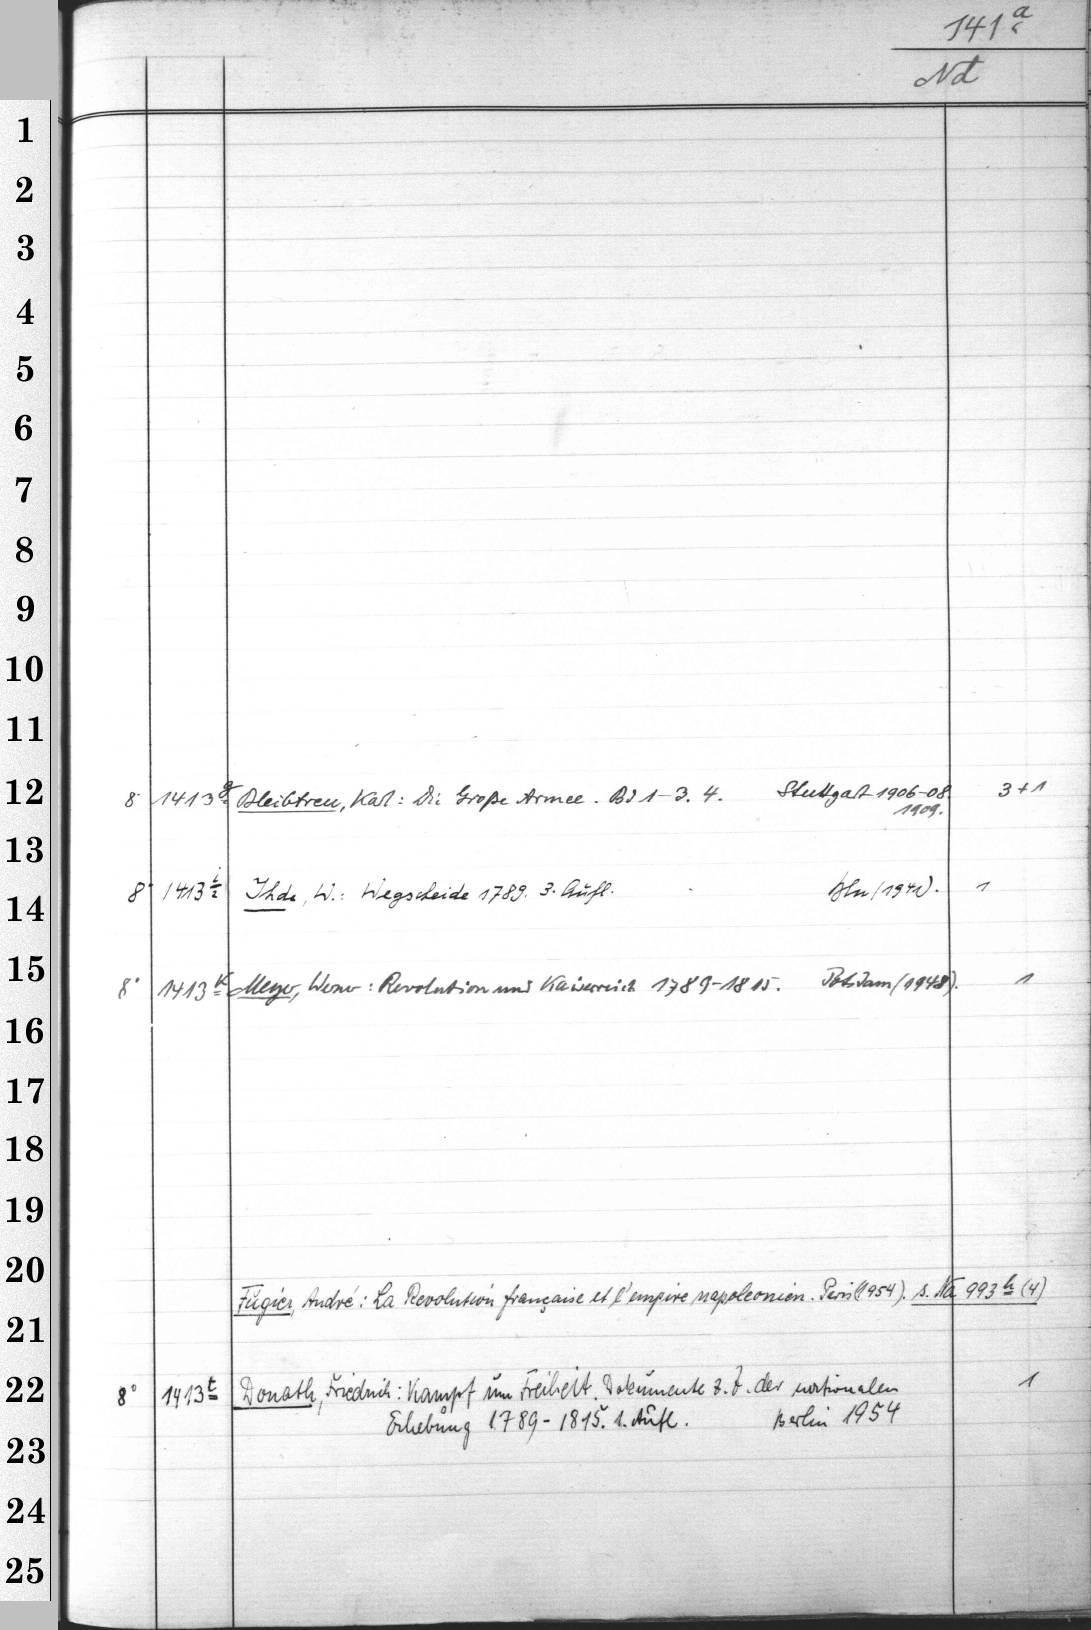 141a
Nd
8° 1413g Bleibtreu, Karl: Die Große Armee. Bd 1-3. 4. Stuttgart 1906-08. 3+1
1909.
8° 1413i Ihde, W.: Wegscheide 1789. 3. Aufl. Bln (1941). 1
8° 1413k Meyer, Werner: Revolution und Kaiserreich 1789-1815. Potsdam (1948). 1
Fugier, André: La Revolution française et l'empire napoleonien. Paris (1954). s. Na 993h (4)
8° 1413t Donath, Friedrich: Kampf um Freiheit. Dokumente z. Z. der nationalen 1
Erhebung 1789-1815. 1. Aufl. Berlin 1954
1
2
3
4
5
6
7
8
9
10
11
12
13
14
15
16
17
18
19
20
21
22
23
24
25